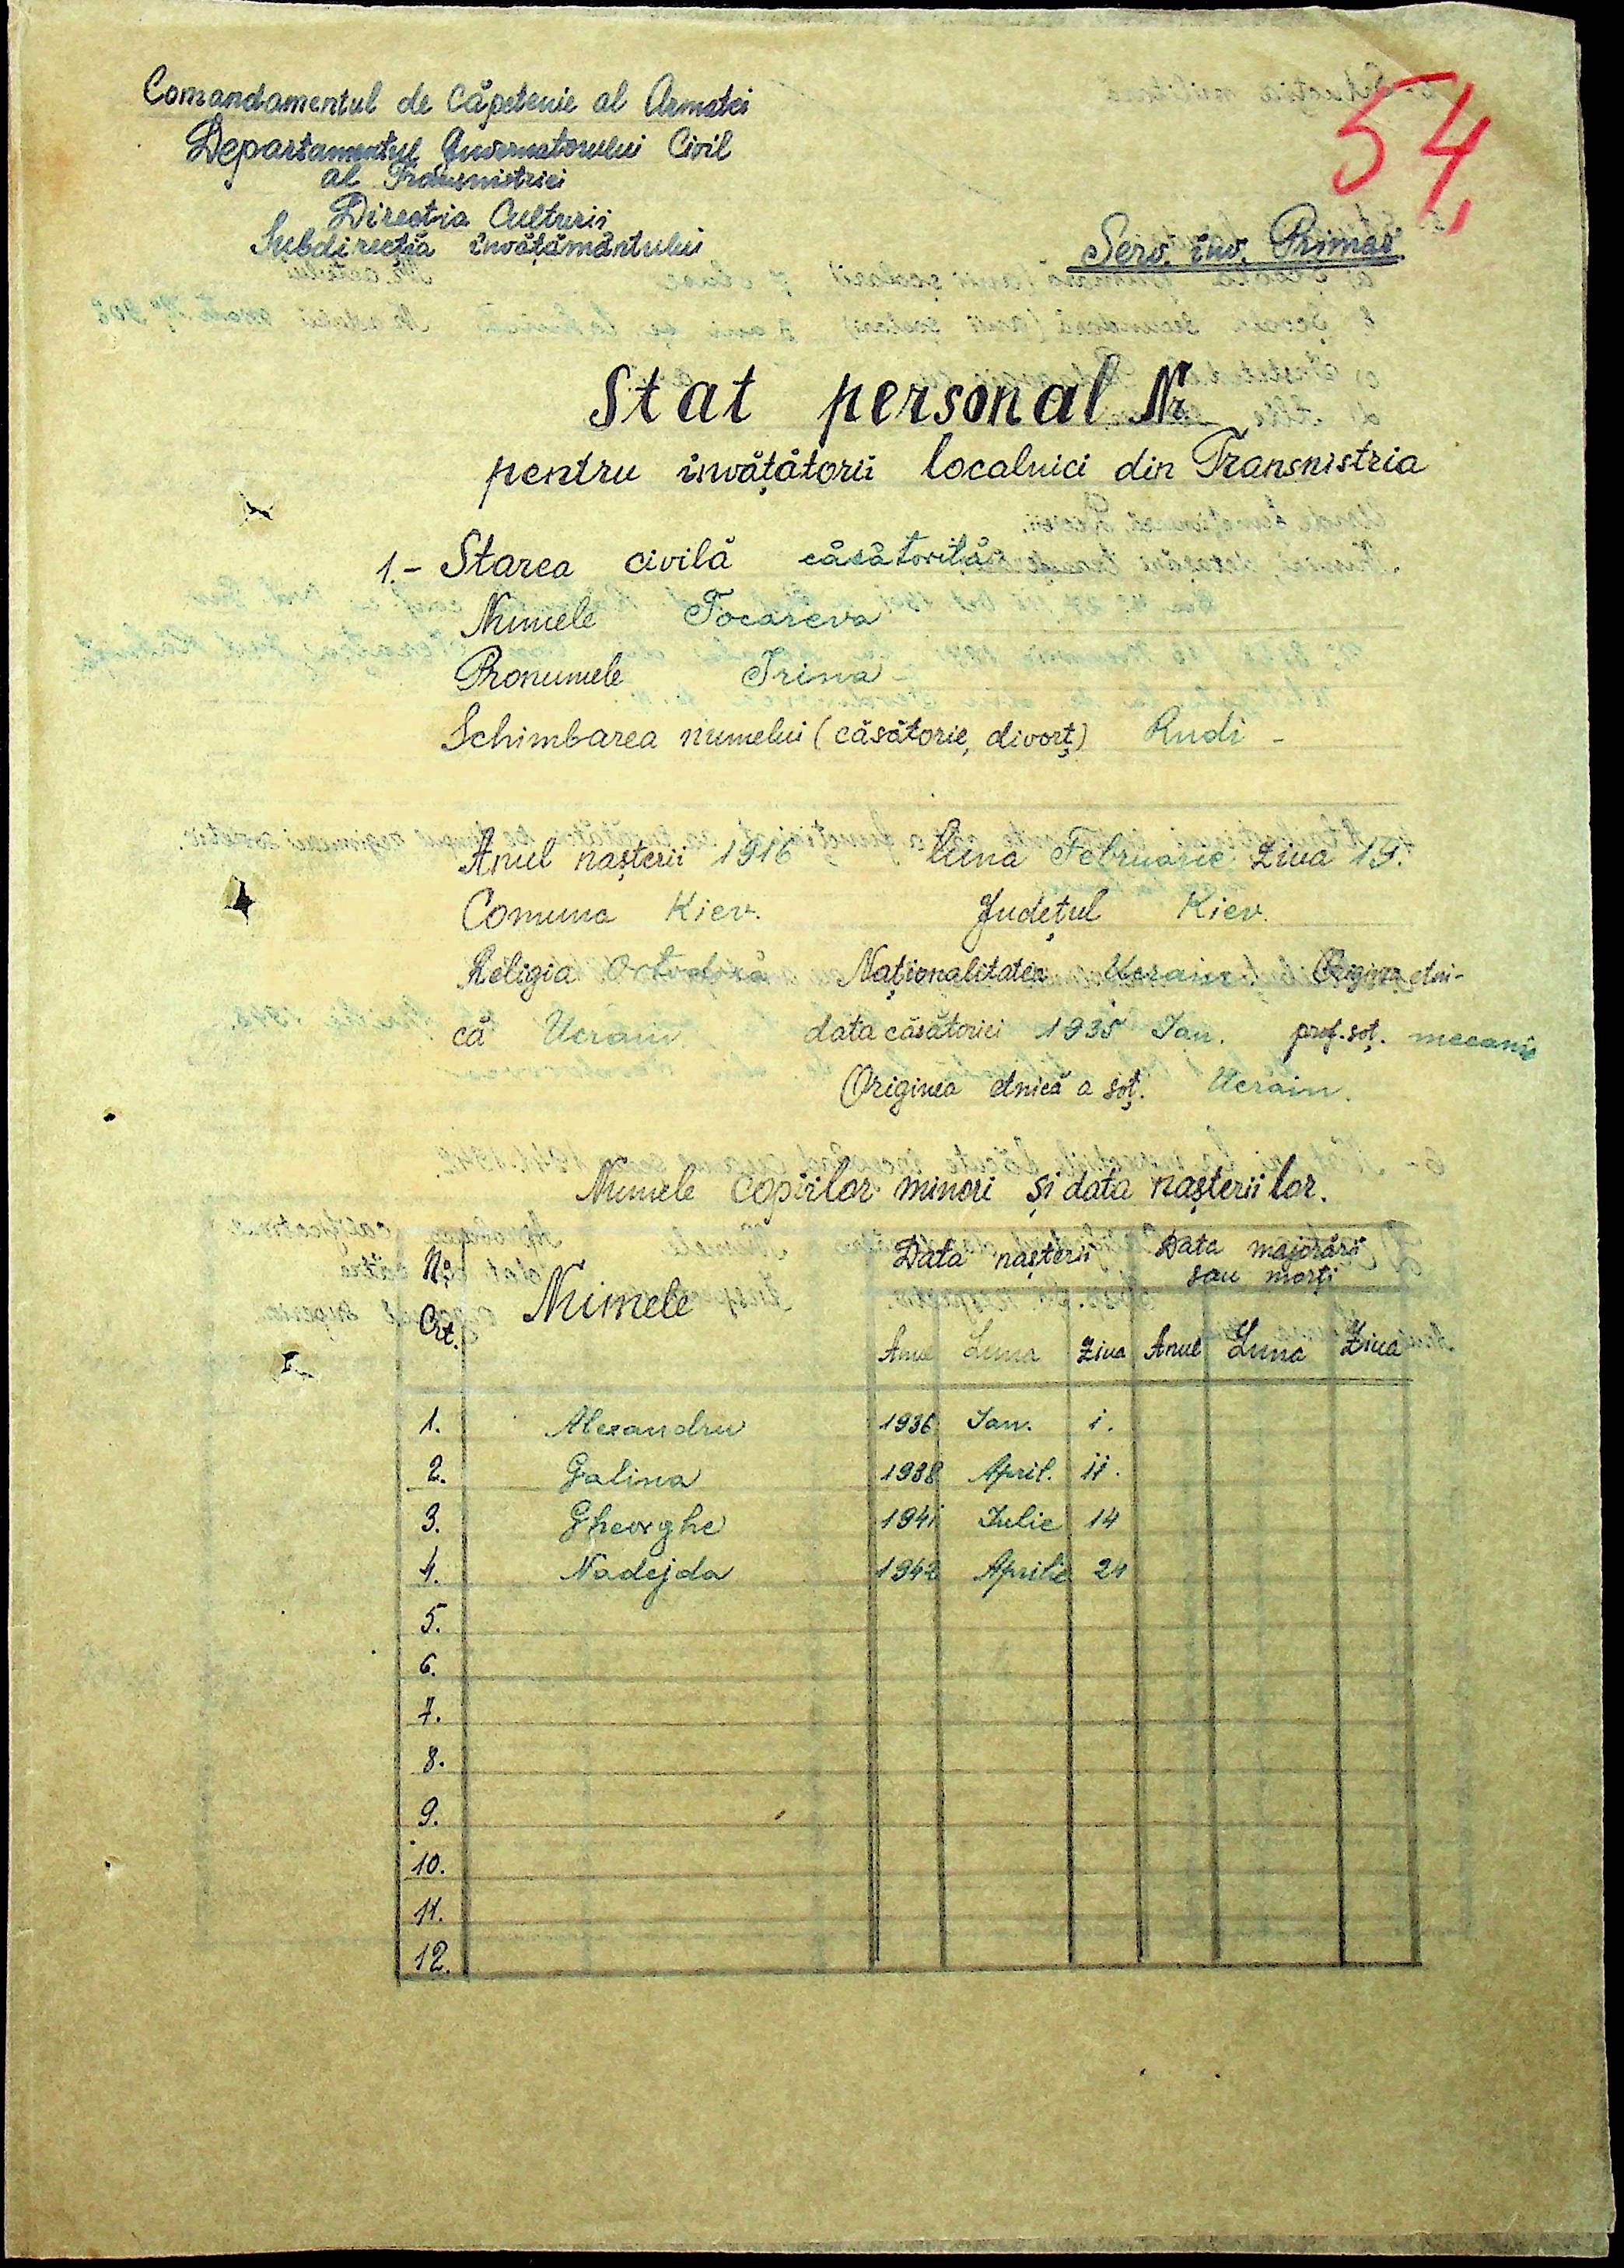 54
Comandamentul de Căpetenie al Armatei
Departamentul Guvernatorului Civil
al Transnistriei
Direcția Culturii
Subdirecția învățământului
Serv. înv. Primar
Stat personal Nr
pentru învățătorii localnici din Transnistria
1.- Starea civilă căsătorită
Numele Tocareva
Pronumele Irina
Schimbarea numelui (căsătorie, divorț) Rudi -
Anul nașterii 1916 luna Februarie ziua 19.
Comuna Kiev. Județul Kiev.
Religia Ortodoxă Naționalitatea Ucrain Origina etni-
că Ucrain. data căsătoriei 1935 Ian. prof. soț. mecanic
Originea etnică a soț. Ucrain.
Numele copiilor minori și data nașterii lor.
No Crt. Numele Data nașterii Data majorării sau morți
Anul Luna Ziua Anul Luna Ziua
1. Alexandru 1936 Ian. i.
2. Galina 1938 April. ii.
3. Gheorghe 1941 Iulie 14
4. Nadejda 1942 Aprilie 24
5.
6.
7.
8.
9.
10.
11.
12.